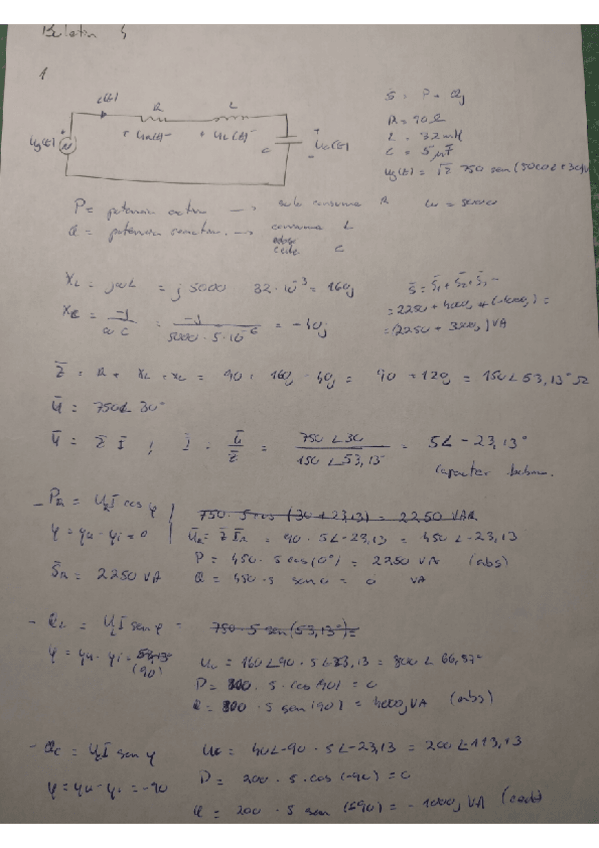 Boletin 5
1
i(t) R L
+ UR(t) - + UL(t) -
ug(t) C + Uc(t) -
S̄ = P + Qj
R = 90 Ω
L = 32 mH
C = 5 μF
ug(t) = √2 750 sen (5000t + 30º)
P = potencia activa → solo consume R
Q = potencia reactiva → consume L
cede C
XL = jωL = j 5000 32·10⁻³ = 160j
Xc = -j/ω C = -j/5000·5·10⁻⁶ = -40j
= 2250 + 4000j + (-1000j) =
= (2250 + 3000j) VA
Z̄ = R + XL + Xc = 90 + 160j - 40j = 90 + 120j = 150∠53,13° Ω
Ū = 750∠30°
Ū = Z̄ Ī ; Ī = Ū/Z̄ = 750∠30/150∠53,13 = 5∠-23,13°
- PR = UR I cos φ
750·5 cos (30+23,13) = 2250 VAR
φ = φu - φi = 0
ŪR = Z̄ ĪR = 90 · 5∠-23,13 = 450∠-23,13
P = 450·5 cos(0°) = 2250 VA (abs)
S̄R = 2250 VA
Q = 450·5 sen 0 = 0 VA
- QL = UL I sen φ = 750·5 sen(53,13°)=
φ = φu - φi =
(90)
UL = 160∠90 · 5∠-23,13 = 800∠66,87°
P = 800 · 5 · cos(90) = 0
Q = 800 · 5 sen(90) = 4000j VA (abs)
- Qc = Uc I sen φ
Uc = 40∠-90 · 5∠-23,13 = 200∠-113,13
φ = φu - φi = -90
P = 200 · 5 · cos (-90) = 0
Q = 200 · 5 sen (-90) = -1000j VA (cede)